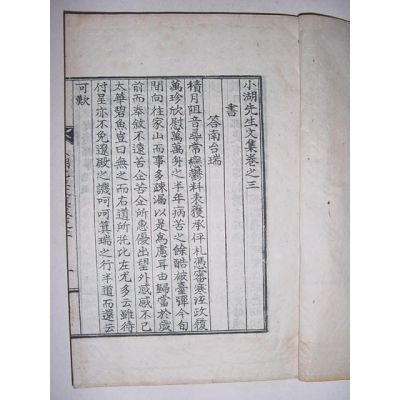 小湖先生文集卷之三
書
答南台瑞
積月阻音尋常戀鬱料表獲承伻札憑審寒沍政履
萬珍欣慰萬萬弁之半年病苦之餘酷被臺彈今旬
間向往家山而事多疎漏以是爲慮耳由歸當於歲
前而奉敘不遠苦企苦企所惠優出望外感感不已
太華碧魚豈曰無之而右道所托比左尤多云雖待
付呈亦不免遼殿之譏呵呵箕瑞之行半道而還云
可歎